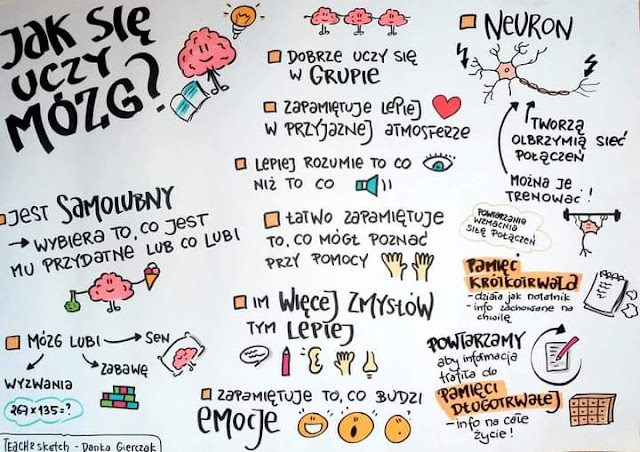 JAK SIĘ
UCZY
MÓZG?
JEST SAMOLUBNY
→ WYBIERA TO, CO JEST
MU PRZYDATNE LUB CO LUBI
MÓZG LUBI → SEN
ZABAWĘ
WYZWANIA
267×135=?
TEACH2SKETCH - Danka Gierczak
DOBRZE UCZY SIĘ
W GRUPIE
ZAPAMIĘTUJE LEPIEJ
W PRZYJAZNEJ ATMOSFERZE
LEPIEJ ROZUMIE TO CO
NIŻ TO CO
ŁATWO ZAPAMIĘTUJE
TO, CO MÓGŁ POZNAĆ
PRZY POMOCY
IM WIĘCEJ ZMYSŁÓW
TYM LEPIEJ
ZAPAMIĘTUJE TO, CO BUDZI
EMOCJE
NEURON
TWORZĄ
OLBRZYMIĄ SIEĆ
POŁĄCZEŃ
MOŻNA JE
TRENOWAĆ!
POWTARZANIE
WZMACNIA
SIŁĘ POŁĄCZEŃ
PAMIĘĆ
KRÓTKOTRWAŁA
- działa jak notatnik
- info zachowane na
chwilę
POWTARZAMY
aby informacja
trafiła do
PAMIĘCI
DŁUGOTRWAŁEJ
- info na całe
życie!